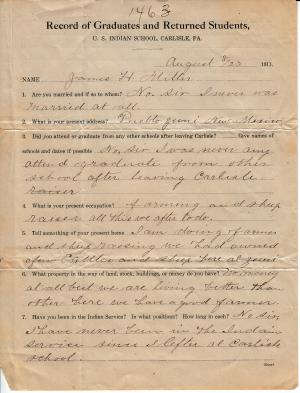 1463
Record of Graduates and Returned Students,
U. S. INDIAN SCHOOL, CARLISLE, PA.
August 8/23 1911.
NAME James H. Miller
1. Are you married and if so to whom? No. sir I never was
married at all
2. What is your present address? Pueblo Zuni New Mexico
3. Did you attend or graduate from any other schools after leaving Carlisle? Give names of
schools and dates if possible No, sir I was never any
attend graduate from other
school after leaving Carlisle
4. What is your present occupation? farming and sheep
raiser all this we after do.
5. Tell something of your present home I am doing farmer
and sheep raesing we had owned
few Cattles and sheep here at zuni
6. What property in the way of land, stock, buildings, or money do you have? No money
at all but we are living better than
other here we have a good farmer
7. Have you been in the Indian Service? In what positions? How long in each? No sir,
I have never been in the Indain
service since I lefter at Carlisle
school.
(Over)